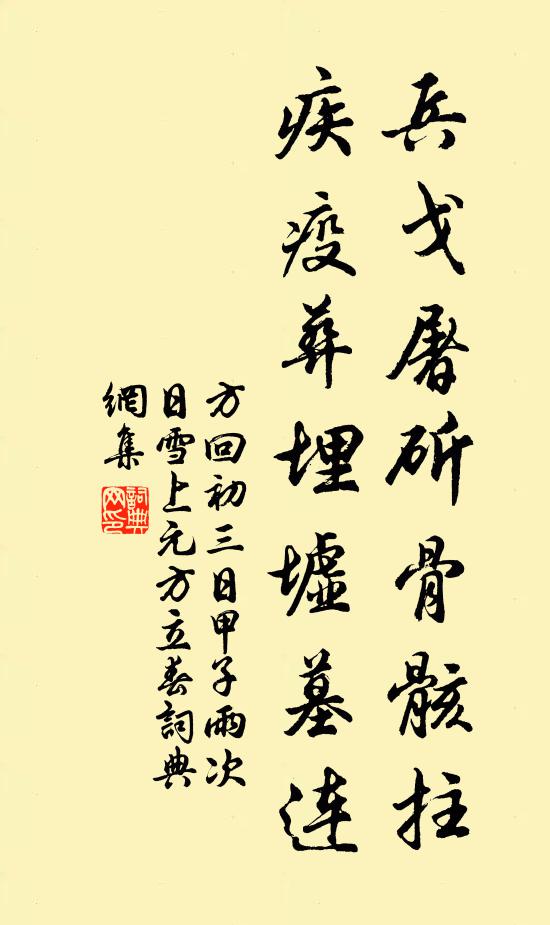 兵戈屠斫骨骸拄
疾疫葬埋墟墓連
方回初三日甲子雨次
日雪上元方立春詞典
網集
詞典網印